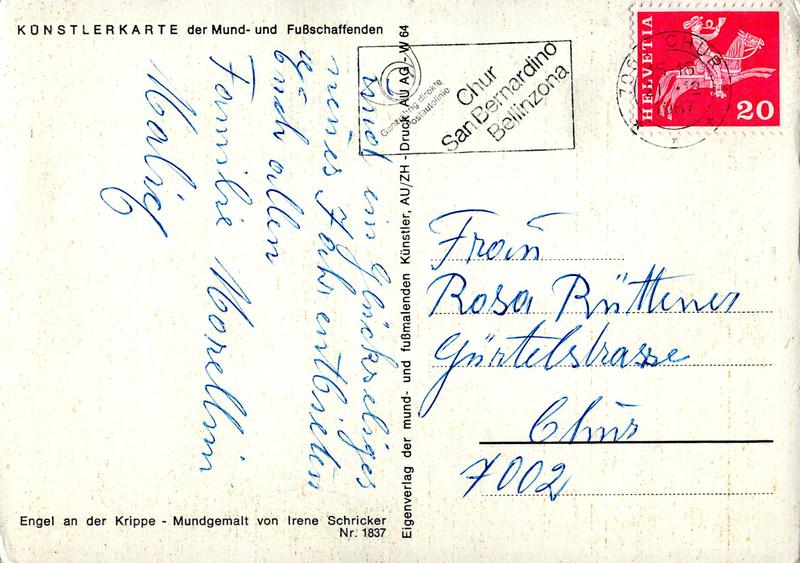 KÜNSTLERKARTE der Mund- und Fußschaffenden
und ein glückseliges
neues Jahr entbieten
Euch allen
Familie Morellini
Malix
Engel an der Krippe - Mundgemalt von Irene Schricker
Nr. 1837
Eigenverlag der mund- und fußmalenden Künstler, AU/ZH - Druck AU AG - W 64
direkte
Postautolinie
Chur
San Bernardino
Bellinzona
CHUR
HELVETIA
20
Frau
Rosa Rüttener
Gürtelstrasse
Chur
7002